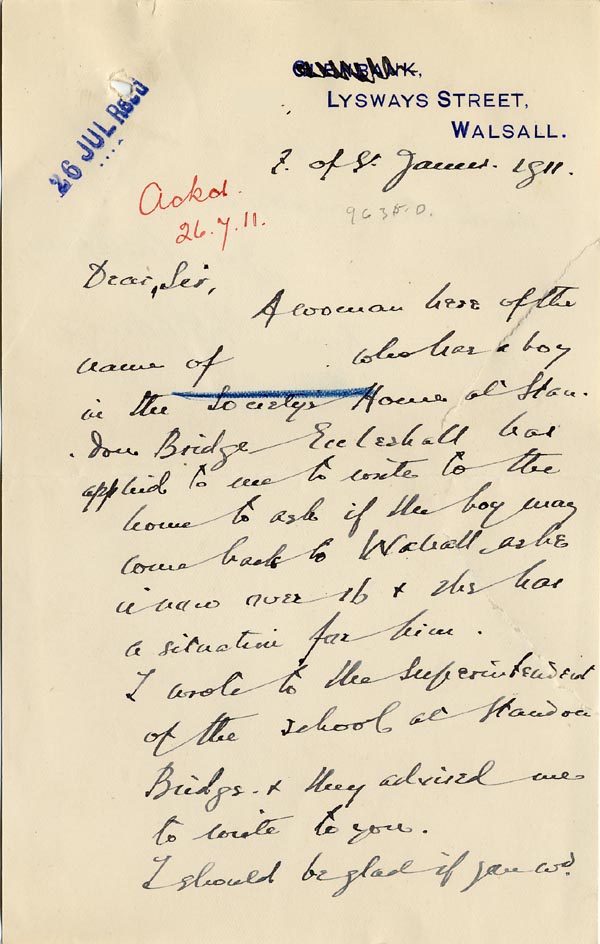 LYSWAYS STREET,
WALSALL.
26 JUL Recd
F. of St. James. 1911.
Ackd.
26.7.11.
9635.D.
Dear Sir,
A woman here of the
name of who has a boy
in the Societys Home at Stan-
don Bridge Eccleshall has
applied to me to write to the
home to ask if the boy may
come back to Walsall, as he
is now over 16 & she has
a situation for him.
I wrote to the Superintendent
of the school at Standon
Bridge. & they advised me
to write to you.
I should be glad if you wd.